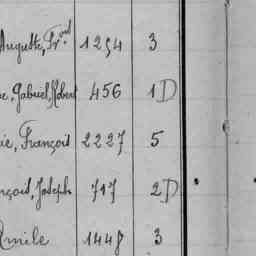 Auguste, Fr 1254 3
e, Gabriel, Robert 456 1D
ie, François 2227 5
nçois, Joseph 717 2D
Emile 1448 3